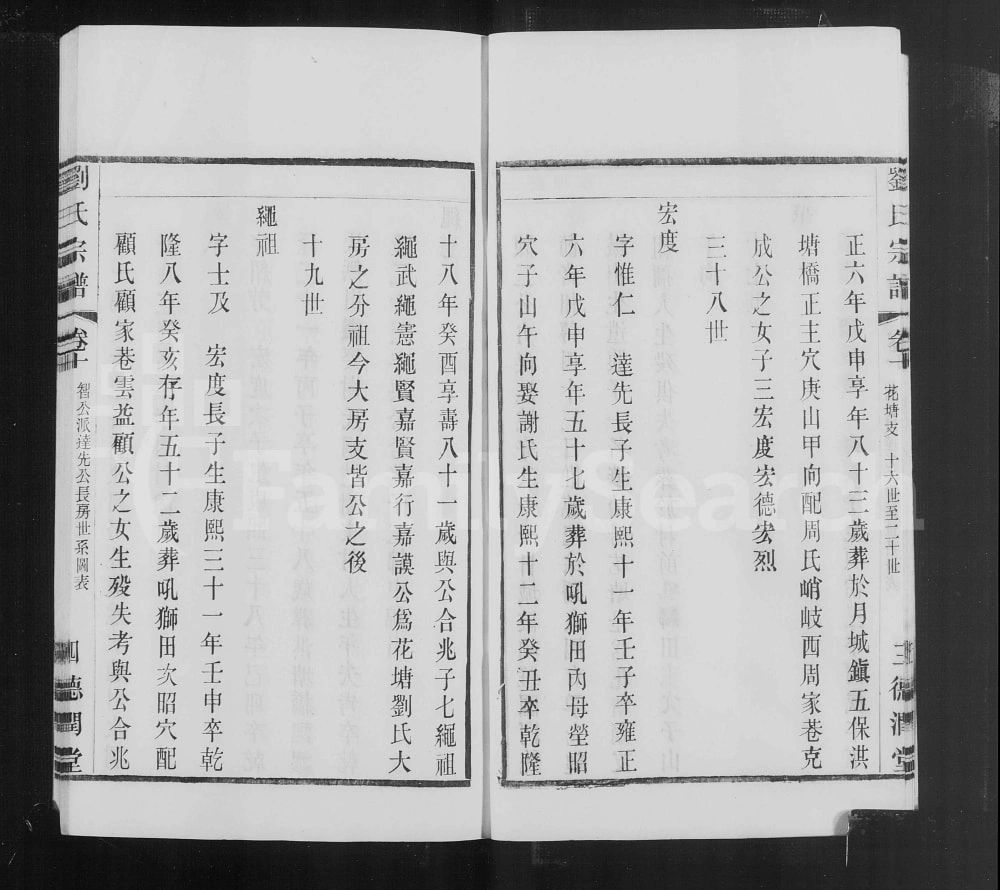 劉氏宗譜 卷十 花塘支 十六世至二十世表 三 德潤堂
正六年戊申享年八十三歲葬於月城鎮五保洪
塘橋正主穴庚山甲向配周氏峭岐西周家巷克
成公之女子三宏度宏德宏烈
三十八世
宏度
字惟仁 達先長子生康熙十一年壬子卒雍正
六年戊申享年五十七歲葬於吼獅田內母塋昭
穴子山午向娶謝氏生康熙十二年癸丑卒乾隆
十八年癸酉享壽八十一歲與公合兆子七繩祖
繩武繩憲繩賢嘉賢嘉行嘉謨公爲花塘劉氏大
房之分祖今大房支皆公之後
十九世
繩祖
字士及 宏度長子生康熙三十一年壬申卒乾
隆八年癸亥存年五十二歲葬吼獅田次昭穴配
顧氏顧家巷雲益顧公之女生歿失考與公合兆
劉氏宗譜 卷十 智公派達先公長房世系圖表 四 德潤堂
FamilySearch